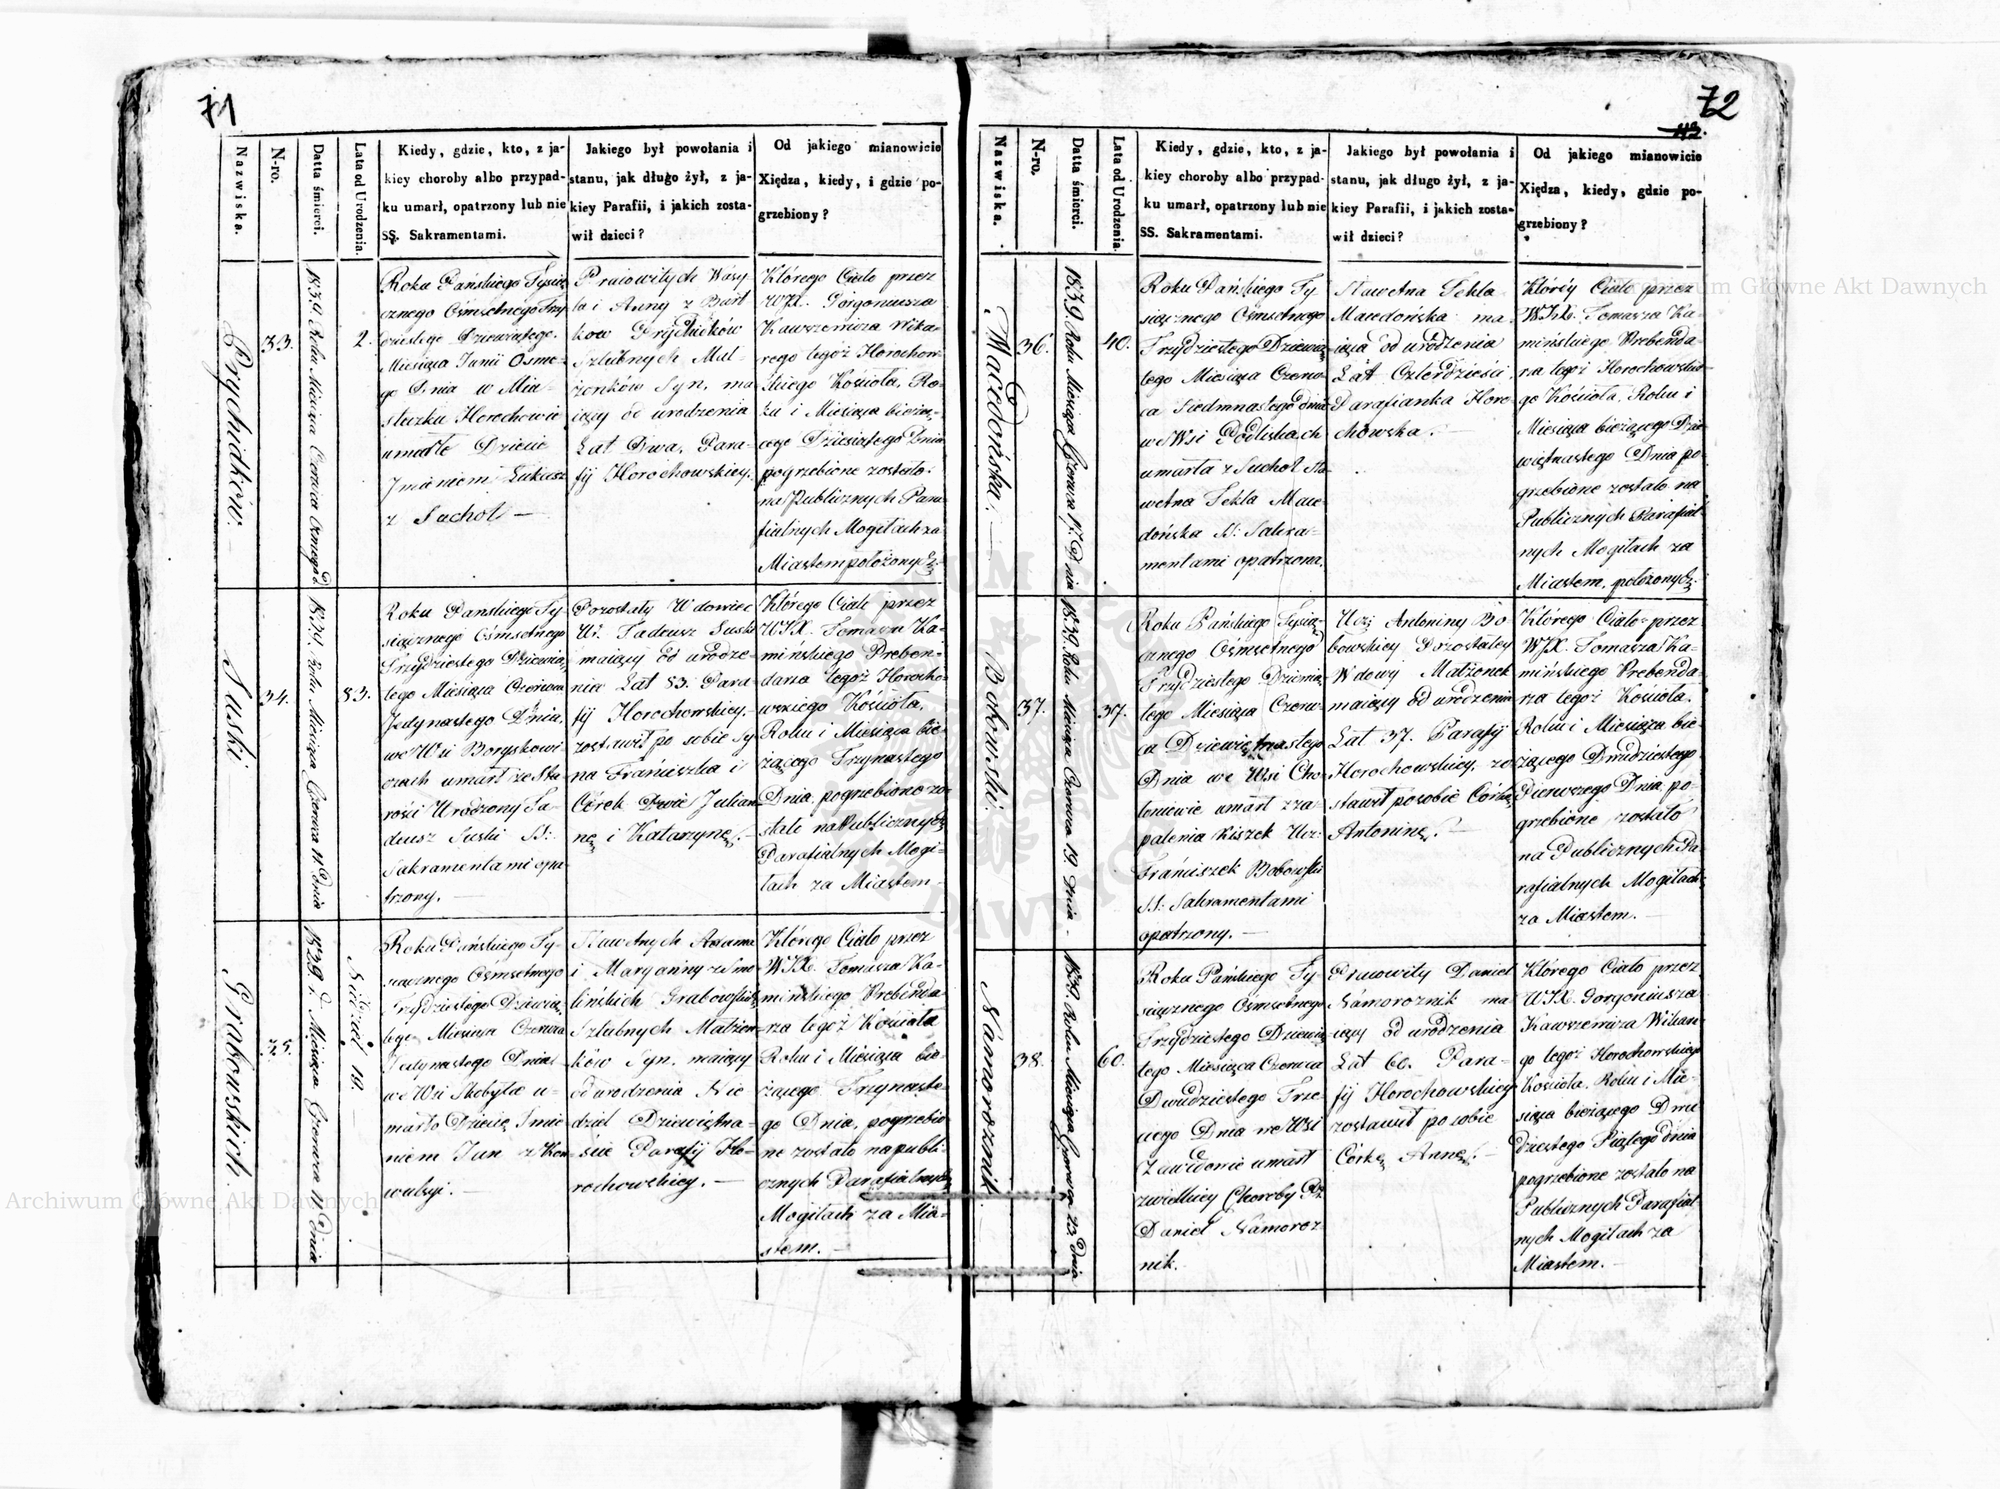 71
Nazwiska.
N-ro.
Datta śmierci.
Lata od Urodzenia.
Kiedy, gdzie, kto, z ja-
kiey choroby albo przypad-
ku umarł, opatrzony lub nie
SS. Sakramentami.
Jakiego był powołania i
stanu, jak długo żył, z ja-
kiey Parafii, i jakich zosta-
wił dzieci?
Od jakiego mianowicie
Xiędza, kiedy, i gdzie po-
grzebiony?
Prychidków.
33.
1839 Roku Miesiąca Czerwca Osmego d.
2.
Roku Pańskiego Tysią
cznego Ośmsetnego Trzy
dziestego Dziewiątego.
Miesiąca Junii Osme-
go Dnia w Mia-
steczku Horochowie
umarło Dziecie
Imieniem Łukasz
z Suchot —
Pracowitych Wasy
la i Anny z Bart
kow Prychidków
Szlubnych Mał-
żonków Syn, ma
iący od urodzenia
Lat Dwa, Para-
fij Horochowskiey.
Którego Ciało przez
WJX. Gorgoniusza
Kawszewicza Wika-
rego tegoż Horochow-
skiego Kościoła, Ro-
ku i Miesiąca bieżą-
cego Dziesiątego Dnia
pogrzebione zostało.
na Publicznych Para
fialnych Mogiłach za
Miastem położonych.
Suski
34.
1839. Roku Miesiąca Czerwca 11 Dnia
83.
Roku Panskiego Ty-
siącznego Ośmsetnego
Trzydziestego Dziewią
tego Miesiąca Czerwca
Jedynastego Dnia,
we Wsi Boryskowi-
czach umarł ze Sta
rości Urodzony Ta-
deusz Suski SS:
Sakramentami opa
trzony.
Pozostały Wdowiec
Ur. Tadeusz Suski
maiący od urodze-
nia Lat 83. Para-
fij Horochowskiey.
zostawił po sobie Sy
na Franciszka i
Córek dwie Julian
nę i Katarzynę.
Którego Ciało przez
WJX. Tomasza Ka-
mińskiego Preben-
darza tegoż Horocho-
wskiego Kościoła,
Roku i Miesiąca bie-
żącego Trzynastego
Dnia, pogrzebione zo-
stało na Publicznych
Parafialnych Mogi-
łach za Miastem
Grabowskich.
35.
1839. r. Miesiąca Czerwca 11 Dnia
Niedziel 19.
Roku Pańskiego Ty-
siącznego Ośmsetnego
Trzydziestego Dziewią
tego Miesiąca Czerwca
Jedynastego Dnia
we Wsi Skobyłce u-
marło Dziecię Imie
niem Jan z Kon
wulsyi. —
Sławetnych Adama
i Maryanny z Smo
lińskich Grabowskich
Szlubnych Małżon
ków Syn, maiący
od urodzenia Nie
dziel Dziewiętna-
ście Parafij Ho-
rochowskiey. —
Którego Ciało przez
WJX. Tomasza Ka-
mińskiego Prebenda-
rza tegoż Kościoła
Roku i Miesiąca bie-
żącego Trzynaste-
go Dnia, pogrzebio
ne zostało na publi-
cznych Parafialnych
Mogiłach za Mia-
stem.
72
113.
Nazwiska.
N-ro.
Datta śmierci.
Lata od Urodzenia.
Kiedy, gdzie, kto, z ja-
kiey choroby albo przypad-
ku umarł, opatrzony lub nie
SS. Sakramentami.
Jakiego był powołania i
stanu, jak długo żył, z ja-
kiey Parafii, i jakich zosta-
wił dzieci?
Od jakiego mianowicie
Xiędza, kiedy, gdzie po-
grzebiony?
Macedońska.
36.
1839. Roku Miesiąca Czerwca 17. Dnia
40.
Roku Pańskiego Ty
siącznego Ośmsetnego
Trzydziestego Dziewią
tego Miesiąca Czerw-
ca Siedmnastego dnia
we Wsi Podliskach
umarła z Suchot Sła
wetna Tekla Mace-
dońska SS: Sakra-
mentami opatrzona.
Sławetna Tekla
Macedońska ma-
iąca od urodzenia
Lat Czterdzieści
Parafianka Horo
chowska.
Któréy Ciało przez
WJX. Tomasza Ka-
mińskiego Prebenda-
rza tegoż Horochowskie-
go Kościoła, Roku i
Miesiąca bieżącego Dzie
więtnastego Dnia po-
grzebione zostało na
Publicznych Parafial-
nych Mogiłach za
Miastem, położonych.
Bobowski.
37.
1839. Roku Miesiąca Czerwca 19 Dnia
37.
Roku Pańskiego Tysią-
cznego Ośmsetnego
Trzydziestego Dziewią
tego Miesiąca Czerw-
ca Dziewiętnastego
Dnia we Wsi Cho-
łoniewie umarł z za-
palenia Kiszek Ucz:
Franciszek Bobowski
SS: Sakramentami
opatrzony. —
Ucz: Antoniny Bo
bowskiey Pozostałey
Wdowy Małżonek
maiący od urodzenia
Lat 37. Parafij
Horochowskiey, zo
stawił po sobie Córkę
Antoninę. —
Którego Ciało przez
WJX. Tomasza Ka-
mińskiego Prebenda-
rza tegoż Kościoła.
Roku i Miesiąca bie-
żącego Dwudziestego
Pierwszego Dnia, po-
grzebione zostało
na Publicznych Pa-
rafialnych Mogiłach
za Miastem. —
Námoroznik
38.
1839. Roku Miesiąca Czerwca 23. Dnia
60.
Roku Pańskiego Ty-
siącznego Ośmsetnego
Trzydziestego Dziewią
tego Miesiąca Czerwca
Dwudziestego Trze-
ciego Dnia we Wsi
Zawidowie umarł
z wielkiey Choroby Pr.
Daniel Namoroz
nik.
Pracowity Daniel
Námoroznik ma
iący od urodzenia
Lat 60. Para-
fij Horochowskiey
zostawił po sobie
Córkę Annę. —
Którego Ciało przez
WJX. Gorgoniusza
Kawszewicza Wikar-
go tegoż Horochowskiego
Kościoła, Roku i Mie-
siąca bieżącego Dwu
dziestego Piątego dnia
pogrzebione zostało na
Publicznych Parafial-
nych Mogiłach za
Miastem. —
Archiwum Główne Akt Dawnych
Archiwum Główne Akt Dawnych